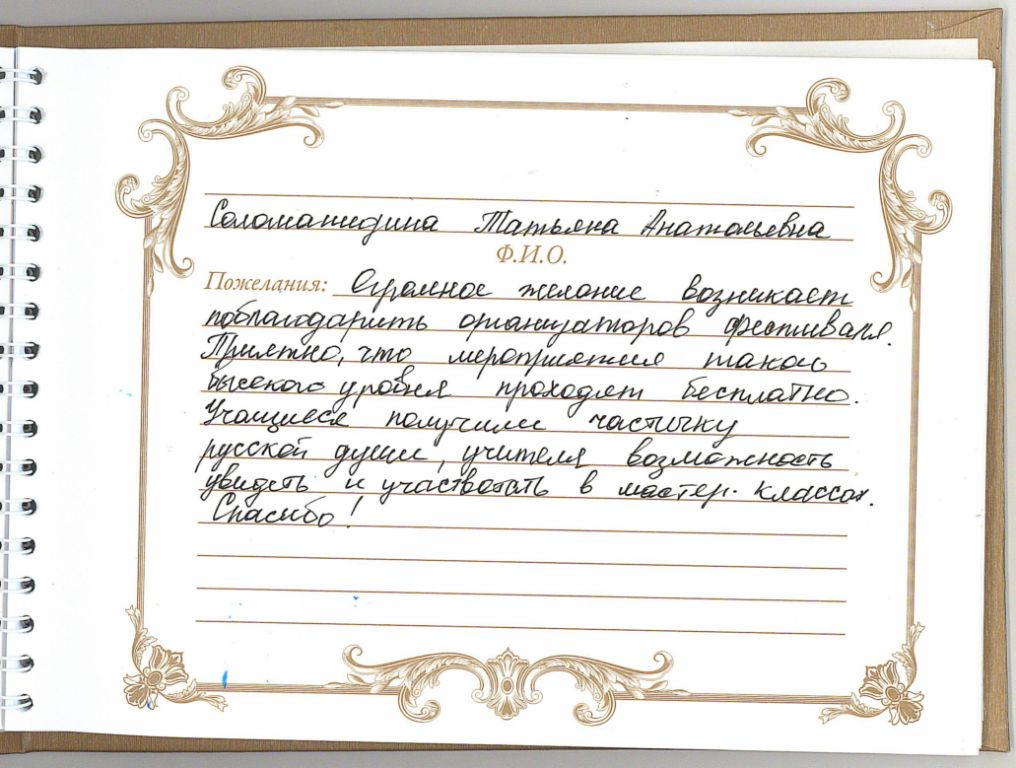 Соломатидина Татьяна Анатольевна
Ф.И.О.
Пожелания: Огромное желание возникает
поблагодарить организаторов фестиваля.
Приятно, что мероприятие такого
высокого уровня проходят бесплатно.
Учащиеся получили частичку
русской души, учителя возможность
увидеть и участвовать в мастер-классах.
Спасибо!